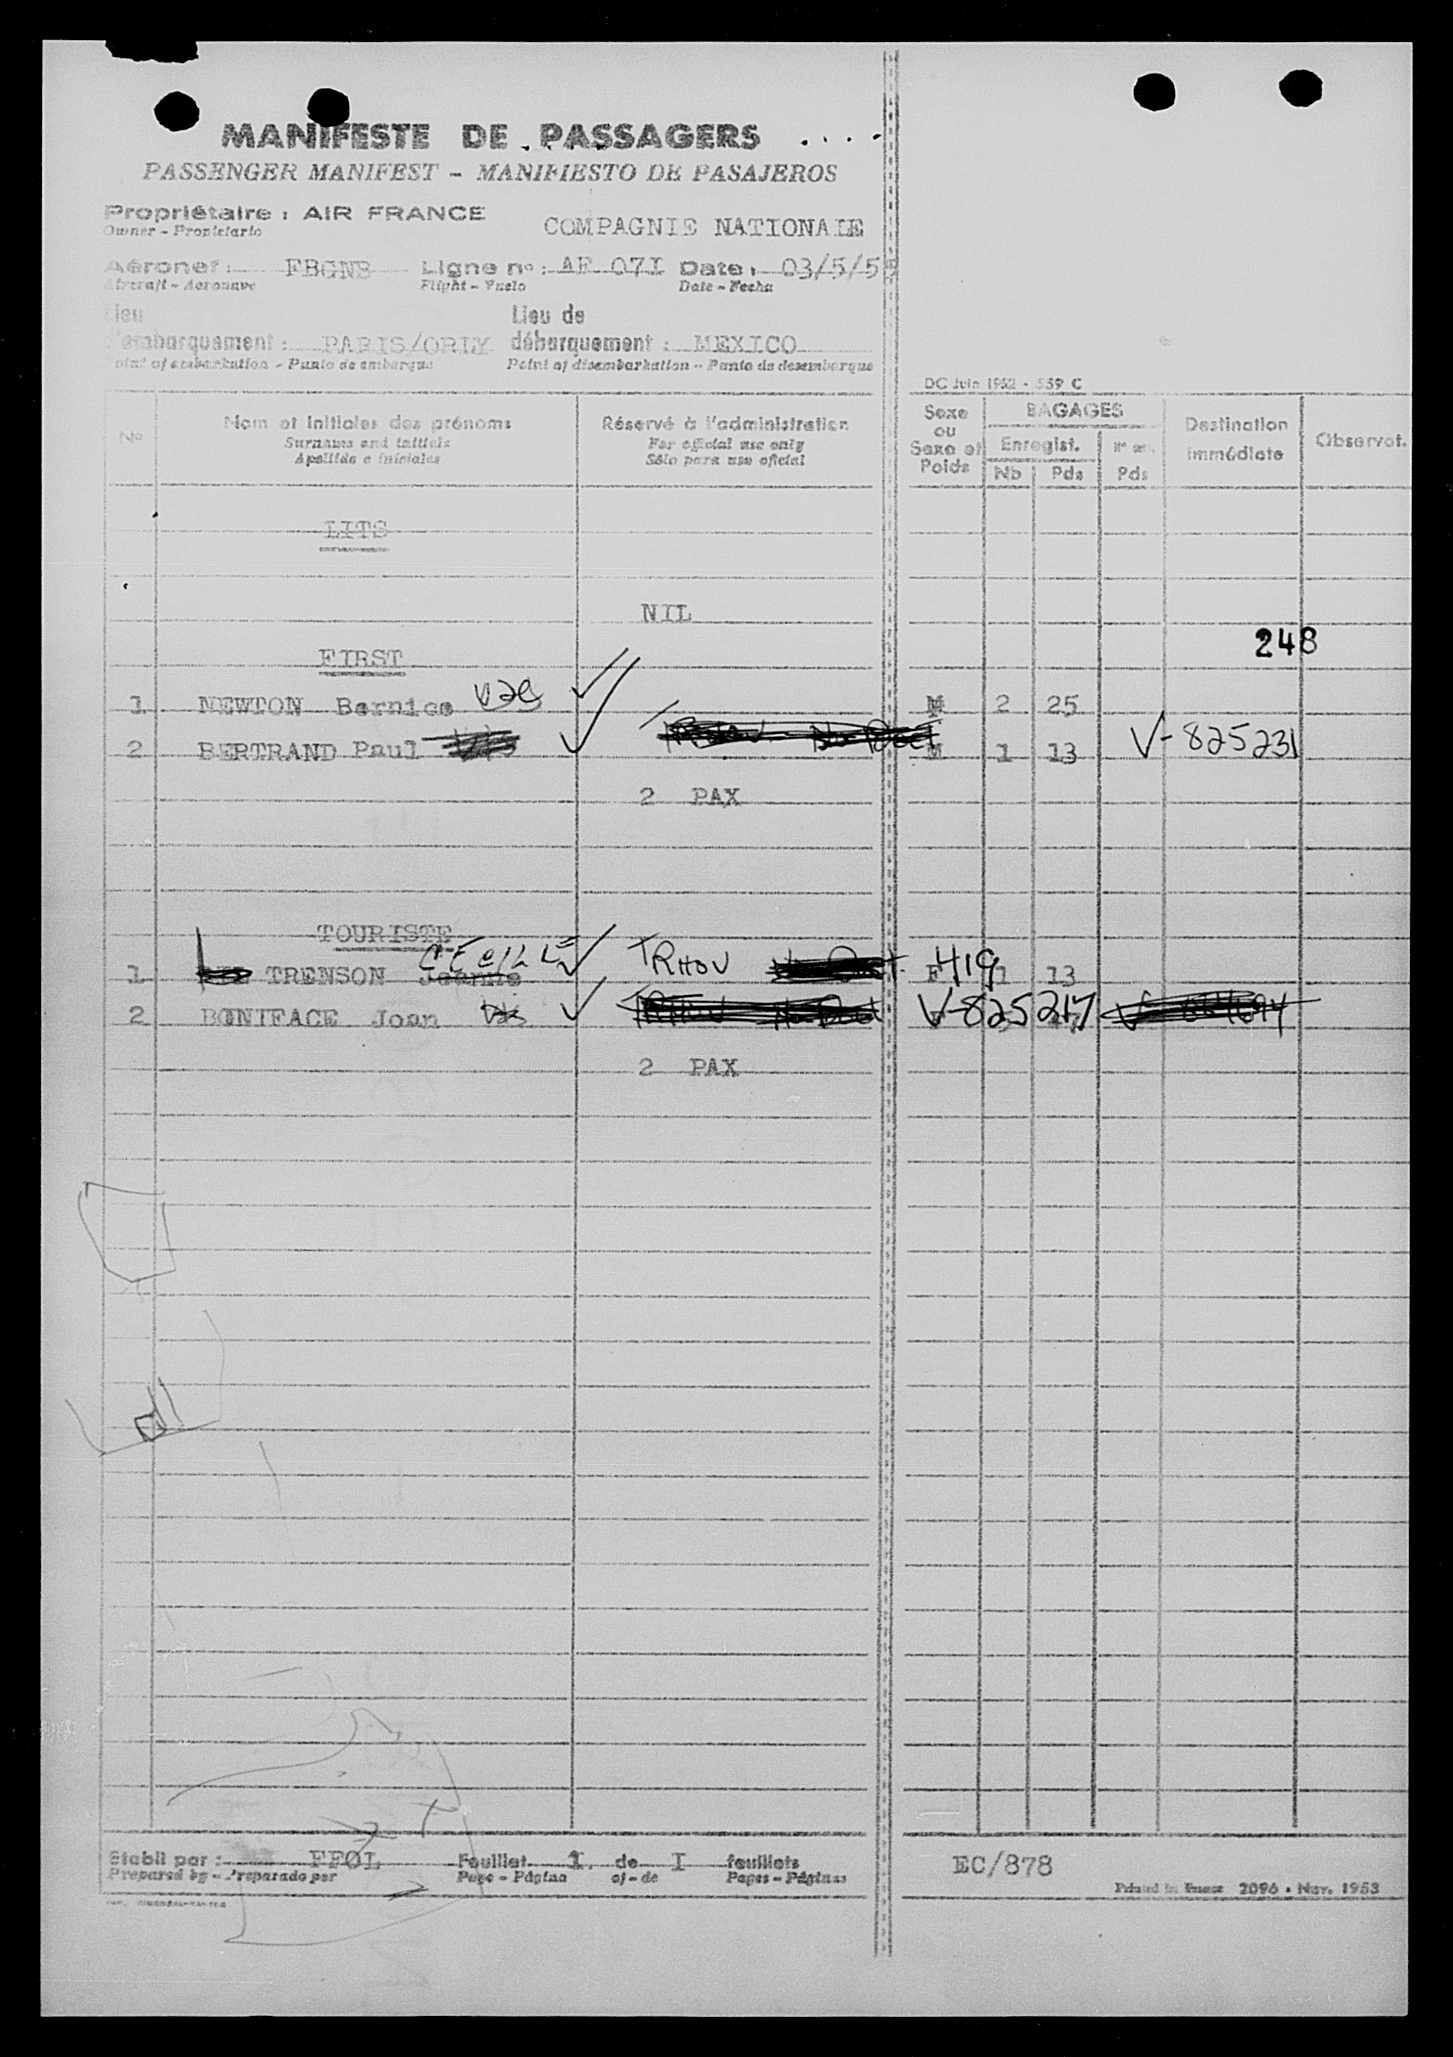 MANIFESTE DE PASSAGERS
PASSENGER MANIFEST - MANIFIESTO DE PASAJEROS
Propriétaire : AIR FRANCE
Owner - Propietario
COMPAGNIE NATIONALE
Aéronef : FBGNB Ligne n° : AF 07I Date : 03/5/55
Aircraft - Aeronave Flight - Vuelo Date - Fecha
Lieu Lieu de
d'embarquement : PARIS/ORLY débarquement : MEXICO
Point of embarkation - Punto de embarque Point of disembarkation - Punto de desembarque
DC Juin 1952 - 559 C
N° Nom et initiales des prénoms Réservé à l'administration
Surname and initials For official use only
Apellido e iniciales Sólo para uso oficial
Sexe ou Sexe et Poids BAGAGES Destination immédiate Observat.
Enregist.
Nb Pds Pds
LITS
NIL
248
FIRST
1 NEWTON Bernice 2 25
2 BERTRAND Paul M 1 13 V-825231
2 PAX
TOURISTE
1 TRENSON Jeanne CECILLE TRHOV F 419 1 13
2 BONIFACE Joan V-825217
2 PAX
Etabli par : FFOL Feuillet 1 de I feuillets
Prepared by - Preparado por Page - Página of - de Pages - Páginas
EC/878
Printed in France 2096 - Nov. 1953